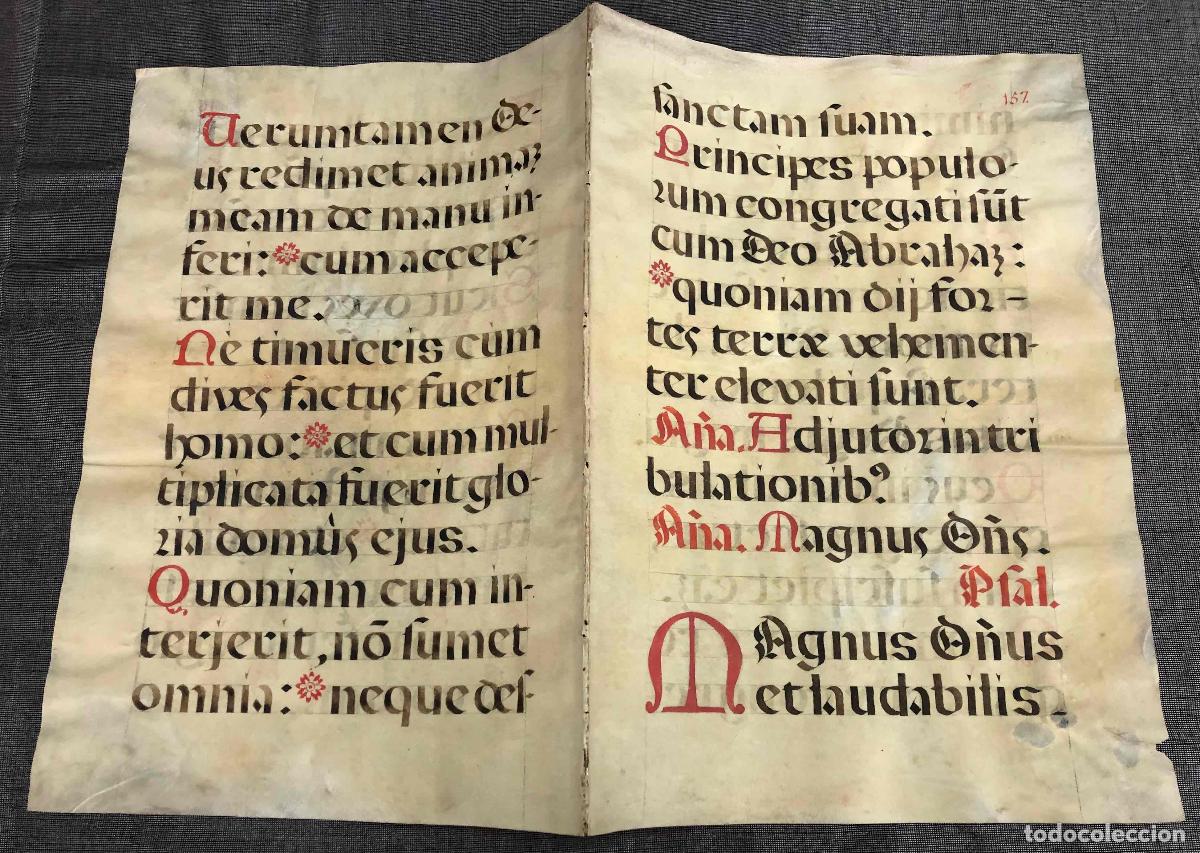 Verumtamen De-
us redimet animaʒ
meam de manu in-
feri: cum accepe-
rit me.
Ne timueris cum
dives factus fuerit
homo: et cum mul-
tiplicata fuerit glo-
ria domus ejus.
Quoniam cum in-
terjerit, nō sumet
omnia: neque des-
157.
sanctam suam.
Principes populo-
rum congregati sūt
cum Deo Abrahaʒ:
quoniam dij for-
tes terræ vehemen-
ter elevati sunt.
Añа. Adjutor in tri
bulationibꝰ
Aña. Magnus Dñs.
Psal.
MAgnus Dñus
et laudabilis
todocoleccion